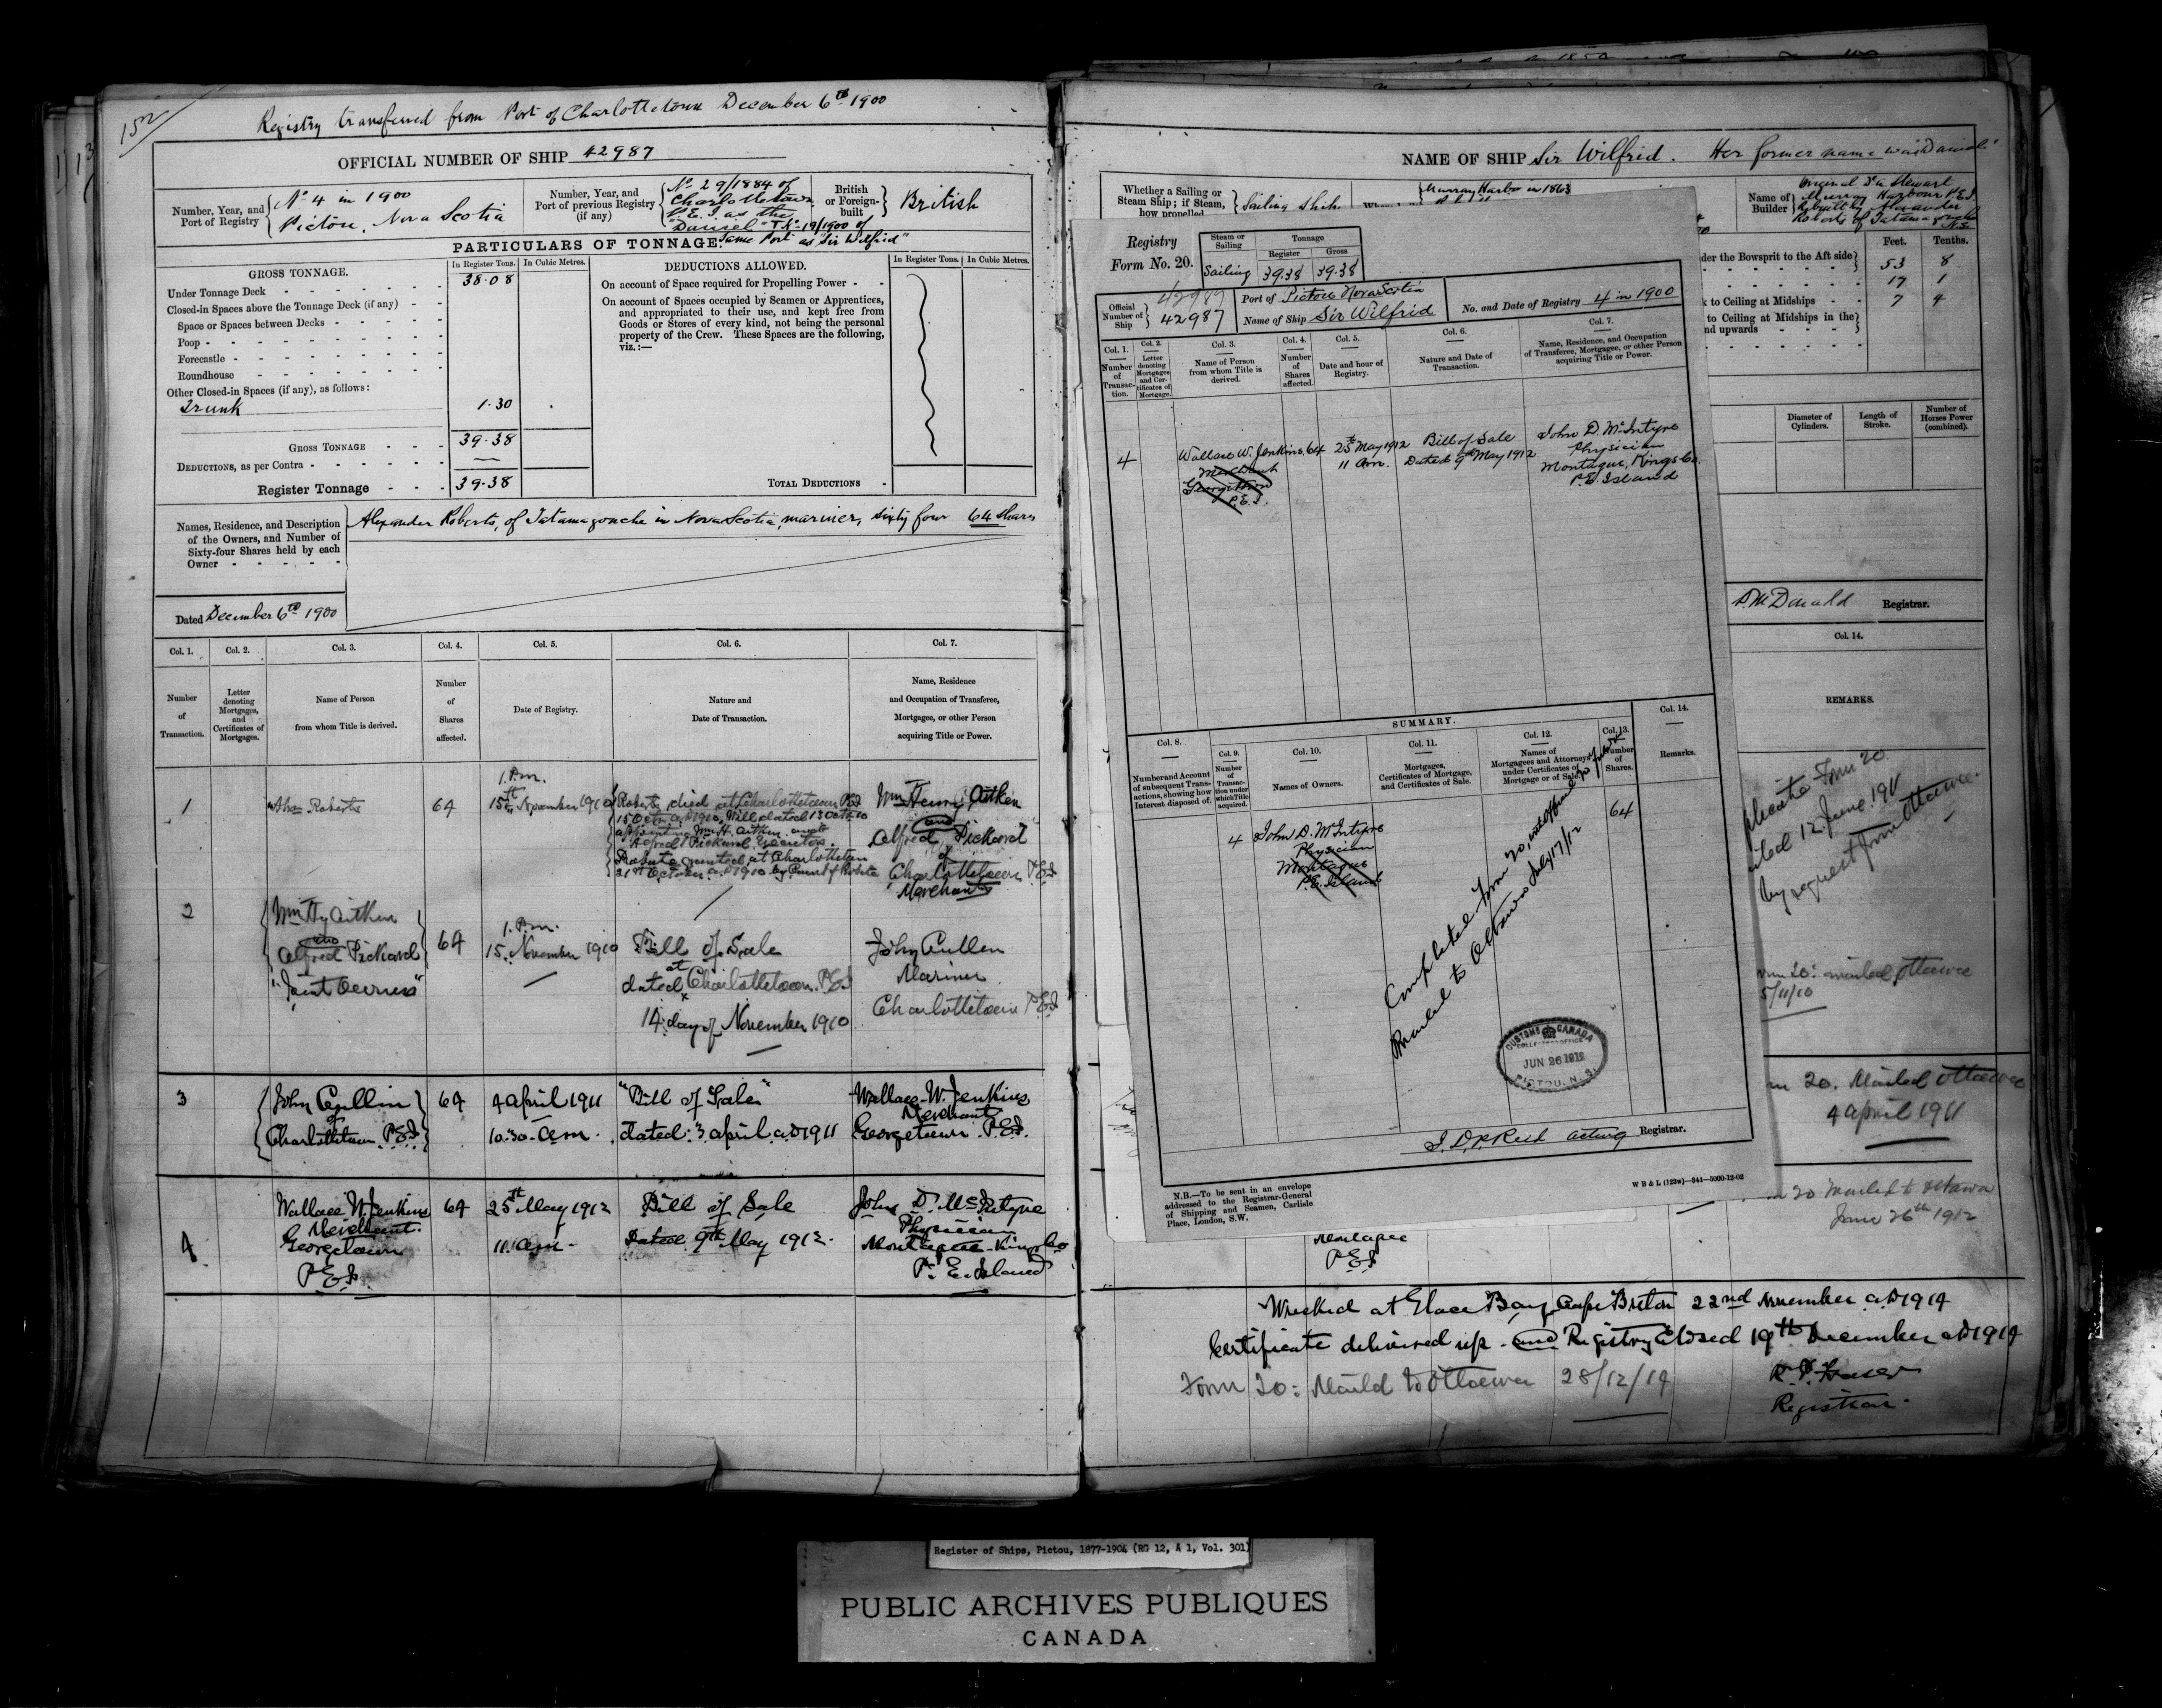 152
Registry transferred from Port of Charlottetown December 6th 1900
OFFICIAL NUMBER OF SHIP 42987
Number, Year, and Port of Registry
No 4 in 1900
Pictou, Nova Scotia
Number, Year, and Port of previous Registry (if any)
No 29/1884 of
Charlottetown
P.E.I. as the
"Daniel" & No 19/1900 of
Same Port as "Sir Wilfrid"
British or Foreign-built
British
PARTICULARS OF TONNAGE.
GROSS TONNAGE.
In Register Tons.
In Cubic Metres.
Under Tonnage Deck 38.08
Closed-in Spaces above the Tonnage Deck (if any)
Space or Spaces between Decks
Poop
Forecastle
Roundhouse
Other Closed-in Spaces (if any), as follows:
Trunk 1.30
GROSS TONNAGE 39.38
DEDUCTIONS, as per Contra
Register Tonnage 39.38
DEDUCTIONS ALLOWED.
In Register Tons.
In Cubic Metres.
On account of Space required for Propelling Power
On account of Spaces occupied by Seamen or Apprentices,
and appropriated to their use, and kept free from
Goods or Stores of every kind, not being the personal
property of the Crew. These Spaces are the following,
viz.:—
TOTAL DEDUCTIONS
Names, Residence, and Description
of the Owners, and Number of
Sixty-four Shares held by each
Owner
Alexander Roberts, of Tatamagouche in Nova Scotia, mariner, sixty four 64 shares
Dated December 6th 1900
Col. 1.
Number of Transaction.
Col. 2.
Letter denoting Mortgages, and Certificates of Mortgages.
Col. 3.
Name of Person from whom Title is derived.
Col. 4.
Number of Shares affected.
Col. 5.
Date of Registry.
Col. 6.
Nature and Date of Transaction.
Col. 7.
Name, Residence and Occupation of Transferee, Mortgagee, or other Person acquiring Title or Power.
1
Roberts
64
1. P.m.
15th November 1910
Roberts died at Charlottetown P.E.I
15 Octr. A.D 1910, Will dated 13 Octr 10
appointing Wm H. Aitken and
Alfred Pickard Executors.
Probate granted at Charlottetown
21st October A.D 1910 by Court of Probate
Wm Henry Aitken
and
Alfred Pickard
of
Charlottetown P.E.I
Merchants
2
Wm Hy Aitken
and
Alfred Pickard
"Joint Owners"
64
1. P.m.
15. November 1910
Bill of Sale
dated at Charlottetown. P.E.I
14 day of November 1910
John Cullen
Mariner
Charlottetown P.E.I
3
John Cullin
of
Charlottetown P.E.I
64
4 April 1911
10.30. a.m.
"Bill of Sale"
dated 3 April A.D 1911
Wallace W. Jenkins
Merchant
Georgetown P.E.I.
4
Wallace W. Jenkins
Merchant
Georgetown
P.E.I.
64
25th May 1912
11. am.
Bill of Sale
Dated 9th May 1912.
John D. McIntyre
Physician
Montague Kings Co
P. E. Island
NAME OF SHIP Sir Wilfrid. Her former name was "Daniel"
Whether a Sailing or
Steam Ship; if Steam,
how propelled
Sailing Ship
Murray Harbor in 1863
Name of Builder
Murray Harbour P.E.I.
Rebuilt by Alexander
Roberts of Tatamagouche
N.S.
Feet.
Tenths.
der the Bowsprit to the Aft side 53 8
17 1
k to Ceiling at Midships 7 4
to Ceiling at Midships in the
nd upwards
Diameter of Cylinders.
Length of Stroke.
Number of Horses Power (combined).
McDonald Registrar.
Col. 14.
REMARKS.
plicate Form 20.
iled 12 June 1911
by request from Ottawa.
rm 20: mailed Ottawa
5/11/10
m 20. Mailed Ottawa
4 April 1911
20 Mailed to Ottawa
June 26th 1912
Registry
Form No. 20.
Steam or Sailing
Tonnage
Register
Gross
Sailing 39.38 39.38
Official Number of Ship
42987
42987
Port of Pictou Nova Scotia
Name of Ship Sir Wilfrid
No. and Date of Registry 4 in 1900
Col. 1.
Number of Transaction.
Col. 2.
Letter denoting Mortgages and Certificates of Mortgage.
Col. 3.
Name of Person from whom Title is derived.
Col. 4.
Number of Shares affected.
Col. 5.
Date and hour of Registry.
Col. 6.
Nature and Date of Transaction.
Col. 7.
Name, Residence, and Occupation of Transferee, Mortgagee, or other Person acquiring Title or Power.
4
Wallace W. Jenkins
Merchant
Georgetown
P.E.I.
64
25th May 1912
11 Am.
Bill of Sale
Dated 9th May 1912
John D. McIntyre
Physician
Montague, Kings Co.
P.E. Island
SUMMARY.
Col. 8.
Number and Account of subsequent Transactions, showing how Interest disposed of.
Col. 9.
Number of Transaction under which Title acquired.
Col. 10.
Names of Owners.
Col. 11.
Mortgages, Certificates of Mortgage, and Certificates of Sale.
Col. 12.
Names of Mortgagees and Attorneys under Certificates of Mortgage or of Sale.
Col. 13.
Number of Shares.
Col. 14.
Remarks.
4
John D. McIntyre
Physician
Montague
P.E. Island
64
Completed Form 20,
Mailed to Ottawa July 17/12
CUSTOMS CANADA
COLLECTOR'S OFFICE
JUN 26 1912
PICTOU, N.S.
Reid acting Registrar.
N.B.—To be sent in an envelope
addressed to the Registrar-General
of Shipping and Seamen, Carlisle
Place, London, S.W.
W B & L (122w)—341—5000-12-02
Montague
P.E.I
Wrecked at Glace Bay Cape Breton 22nd November A.D 1914
Certificate delivered up. and Registry Closed 19th December A.D 1914
Form 20: Maild to Ottawa 28/12/14
Registrar.
Register of Ships, Pictou, 1877-1904 (RG 12, A 1, Vol. 301)
PUBLIC ARCHIVES PUBLIQUES
CANADA